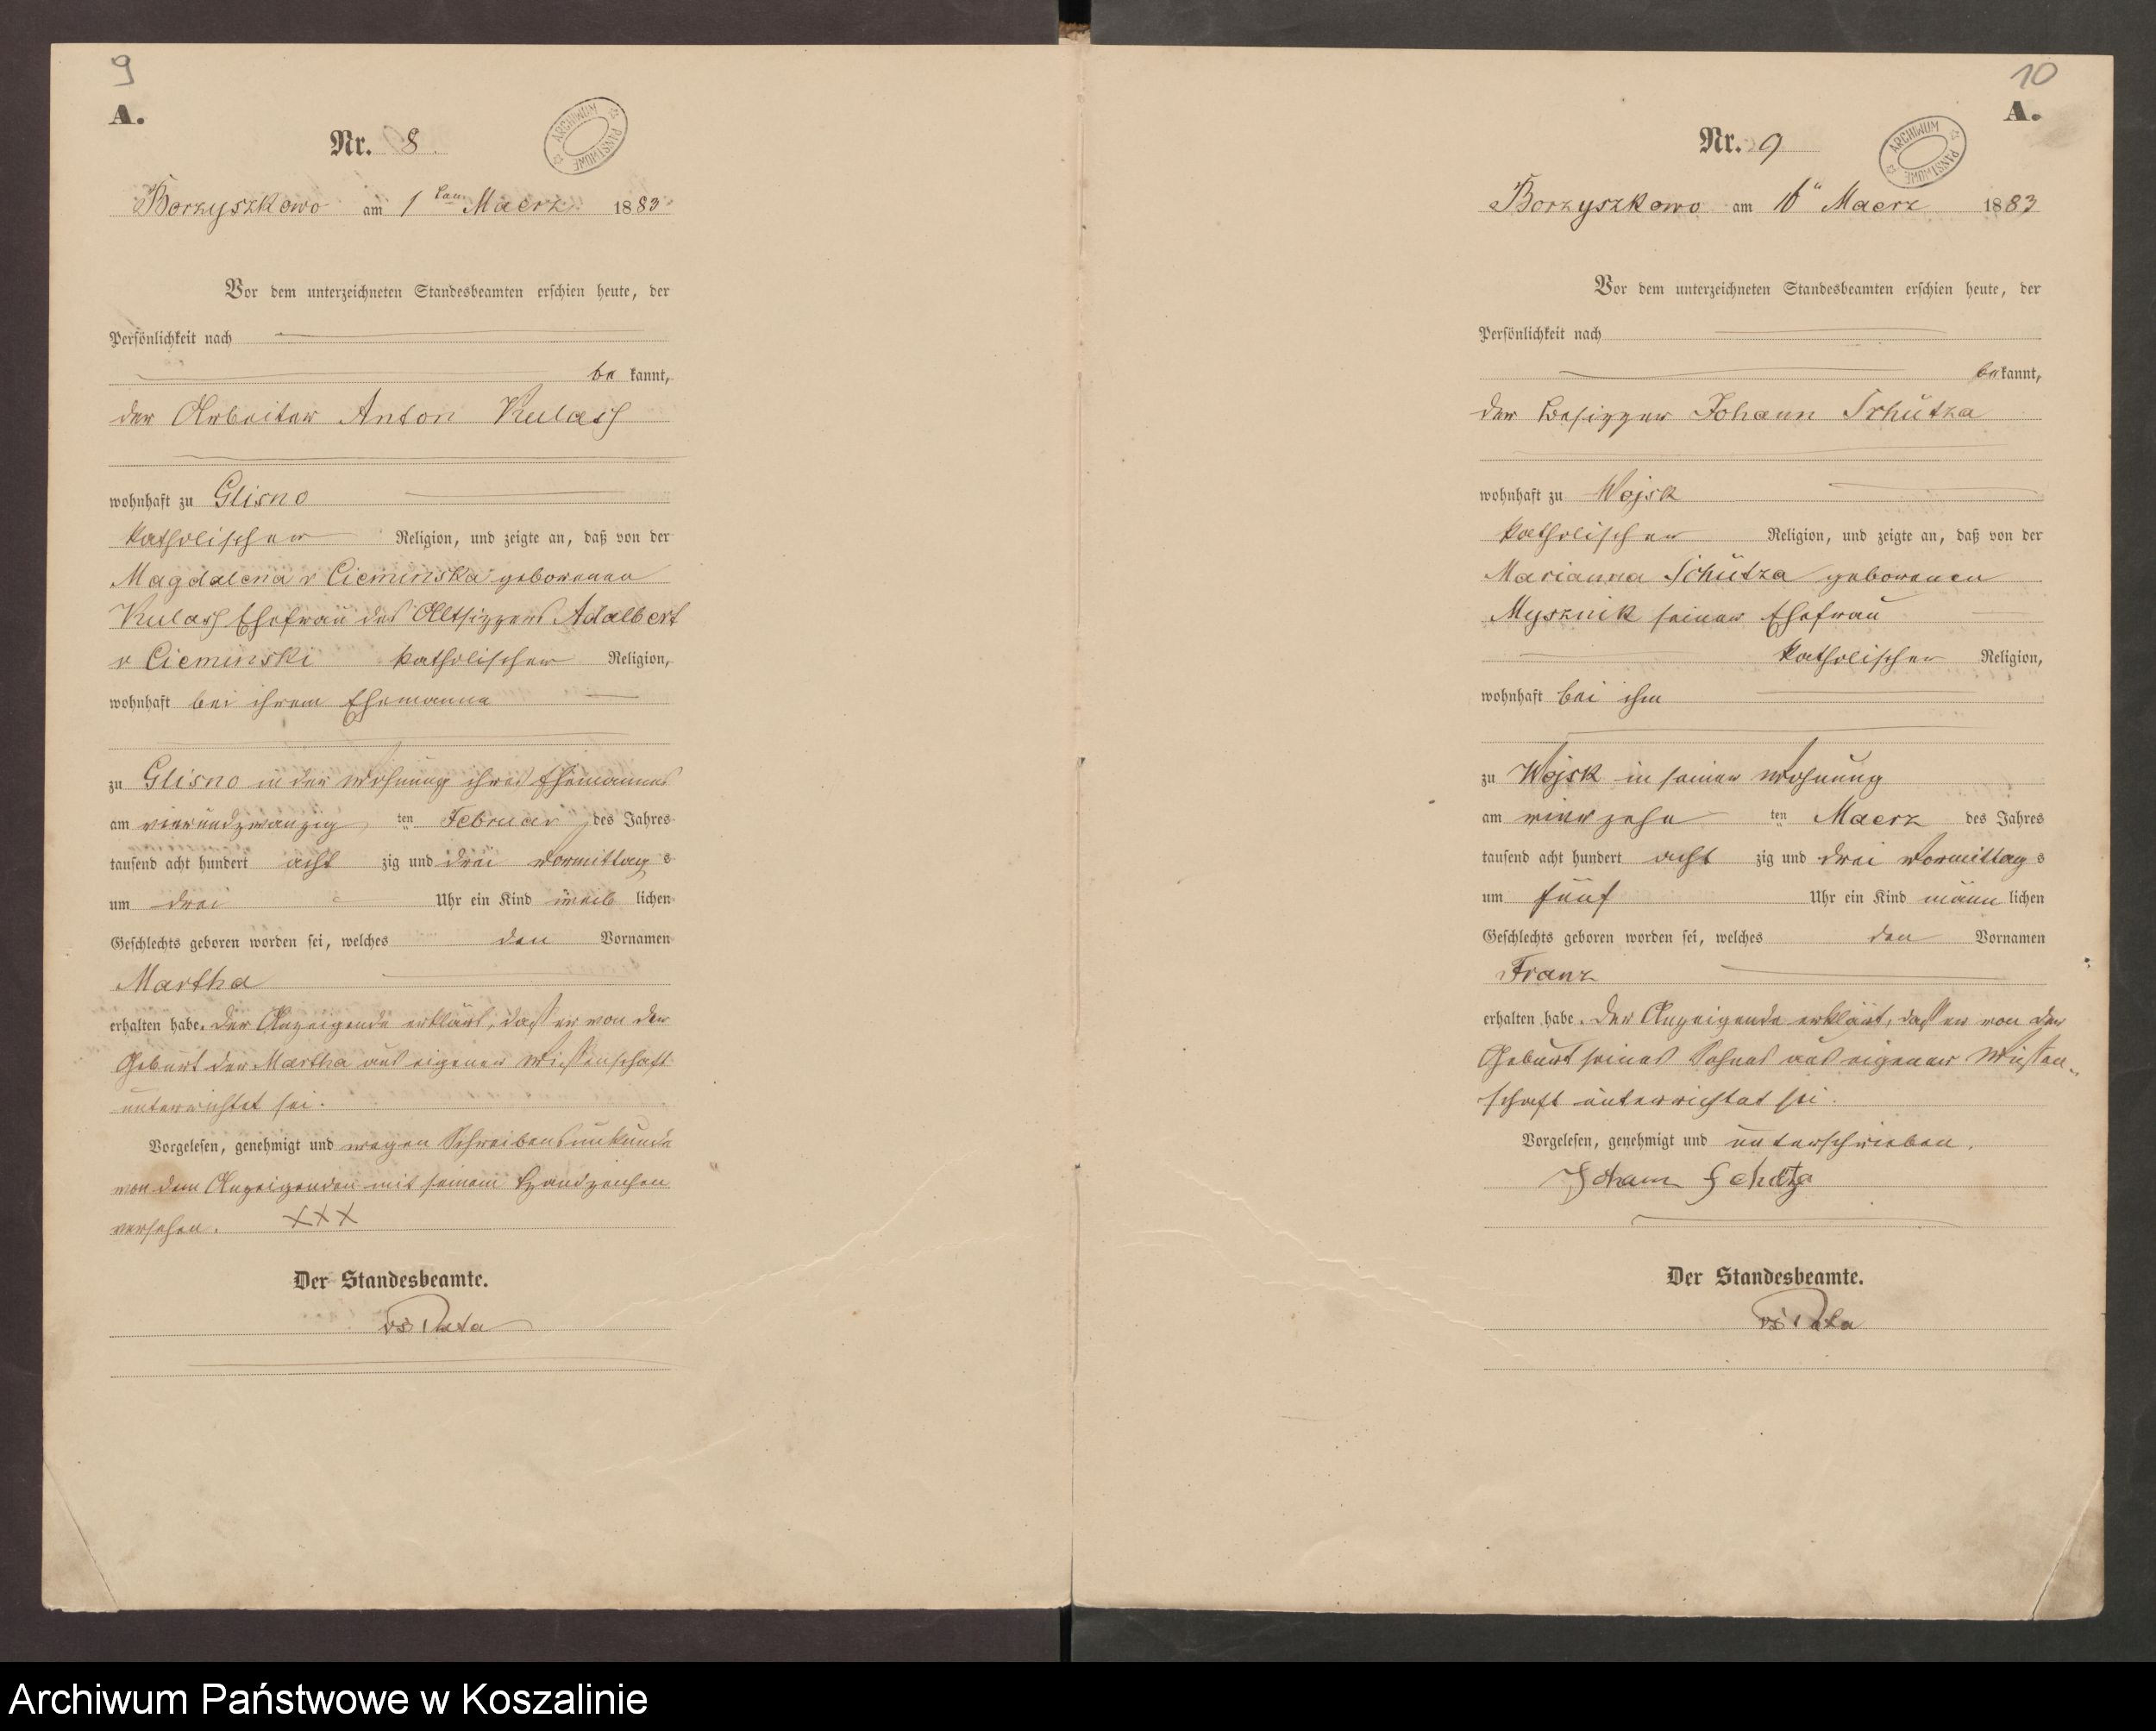 9
A.
Nr. 8
ARCHIWUM PAŃSTWOWE
Borzyszkowo am 1 ten Maerz 1883
Vor dem unterzeichneten Standesbeamten erschien heute, der
Persönlichkeit nach
be kannt,
der Arbeiter Anton Kulas
wohnhaft zu Glisno
katholischer Religion, und zeigte an, daß von der
Magdalena v Cieminska geborenen
Kulas Ehefrau des Altsizzers Adalbert
v Cieminski katholischer Religion,
wohnhaft bei ihrem Ehemanne
zu Glisno in der Wohnung ihres Ehemannes
am vierundzwanzig ten Februar des Jahres
tausend acht hundert acht zig und drei Vormittag s
um drei Uhr ein Kind weib lichen
Geschlechts geboren worden sei, welches den Vornamen
Martha
erhalten habe. Der Anzeigende erklärt, daß er von der
Geburt der Martha aus eigener Wissenschaft
unterrichtet sei.
Vorgelesen, genehmigt und wegen Schreibensunkunde
von dem Anzeigenden mit seinem Handzeichen
versehen. XXX
Der Standesbeamte.
10
A.
Nr. 9
ARCHIWUM PAŃSTWOWE
Borzyszkowo am Maerz 1883
Vor dem unterzeichneten Standesbeamten erschien heute, der
Persönlichkeit nach
be kannt,
der Besizzer Johann Schütza
wohnhaft zu Wojsk
katholischer Religion, und zeigte an, daß von der
Marianna Schütza geborenen
Mysznik seiner Ehefrau
katholischer Religion,
wohnhaft bei ihm
zu Wojsk in seiner Wohnung
am vierzehn ten Maerz des Jahres
tausend acht hundert acht zig und drei Vormittag s
um fünf Uhr ein Kind männ lichen
Geschlechts geboren worden sei, welches den Vornamen
Franz
erhalten habe. Der Anzeigende erklärt, daß er von der
Geburt seines Sohnes aus eigener Wissen-
schaft unterrichtet sei.
Vorgelesen, genehmigt und unterschrieben.
Johann Schütza
Der Standesbeamte.
Archiwum Państwowe w Koszalinie